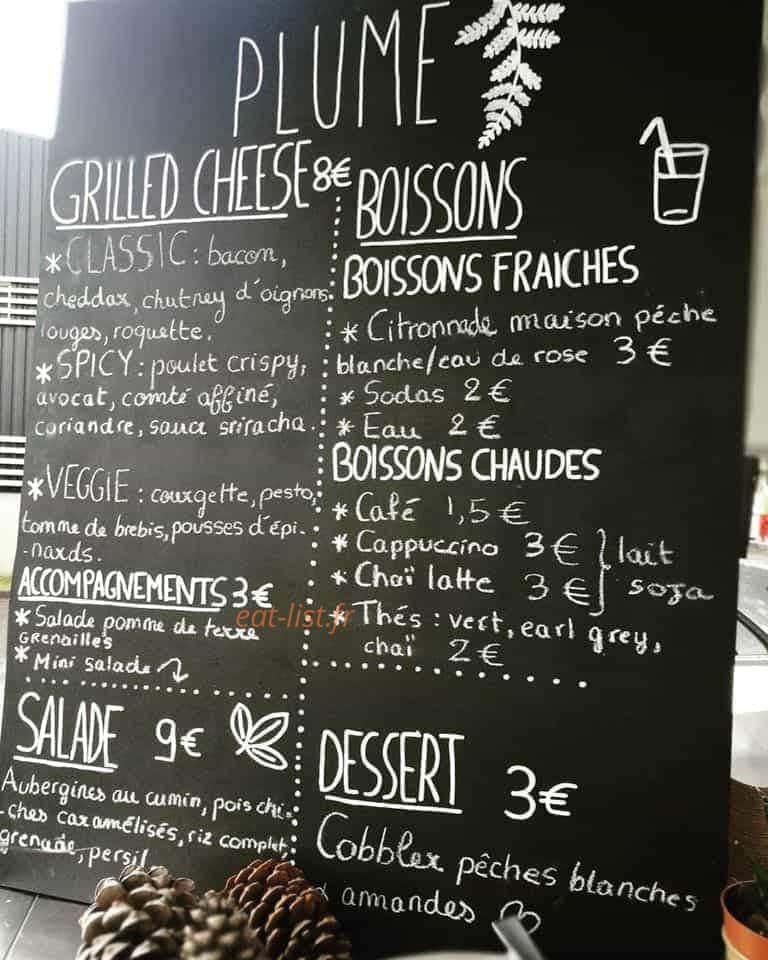 PLUME
GRILLED CHEESE 8€
*CLASSIC : bacon,
cheddar, chutney d'oignons
rouges, roquette.
*SPICY : poulet crispy,
avocat, comté affiné,
coriandre, sauce sriracha.
*VEGGIE : courgette, pesto,
tomme de brebis, pousses d'épi-
-nards.
ACCOMPAGNEMENTS 3€
* Salade pomme de terre
GRENAILLES
* Mini salade
SALADE 9€
Aubergines au cumin, pois chi-
-ches caramélisés, riz complet,
grenade, persil
BOISSONS
BOISSONS FRAICHES
* Citronnade maison pêche
blanche/eau de rose 3€
* Sodas 2€
* Eau 2€
BOISSONS CHAUDES
* Café 1,5€
* Cappuccino 3€ } lait
* Chaï latte 3€ } soja
* Thés : vert, earl grey,
chaï 2€
DESSERT 3€
Cobbler pêches blanches
amandes
eat-list.fr